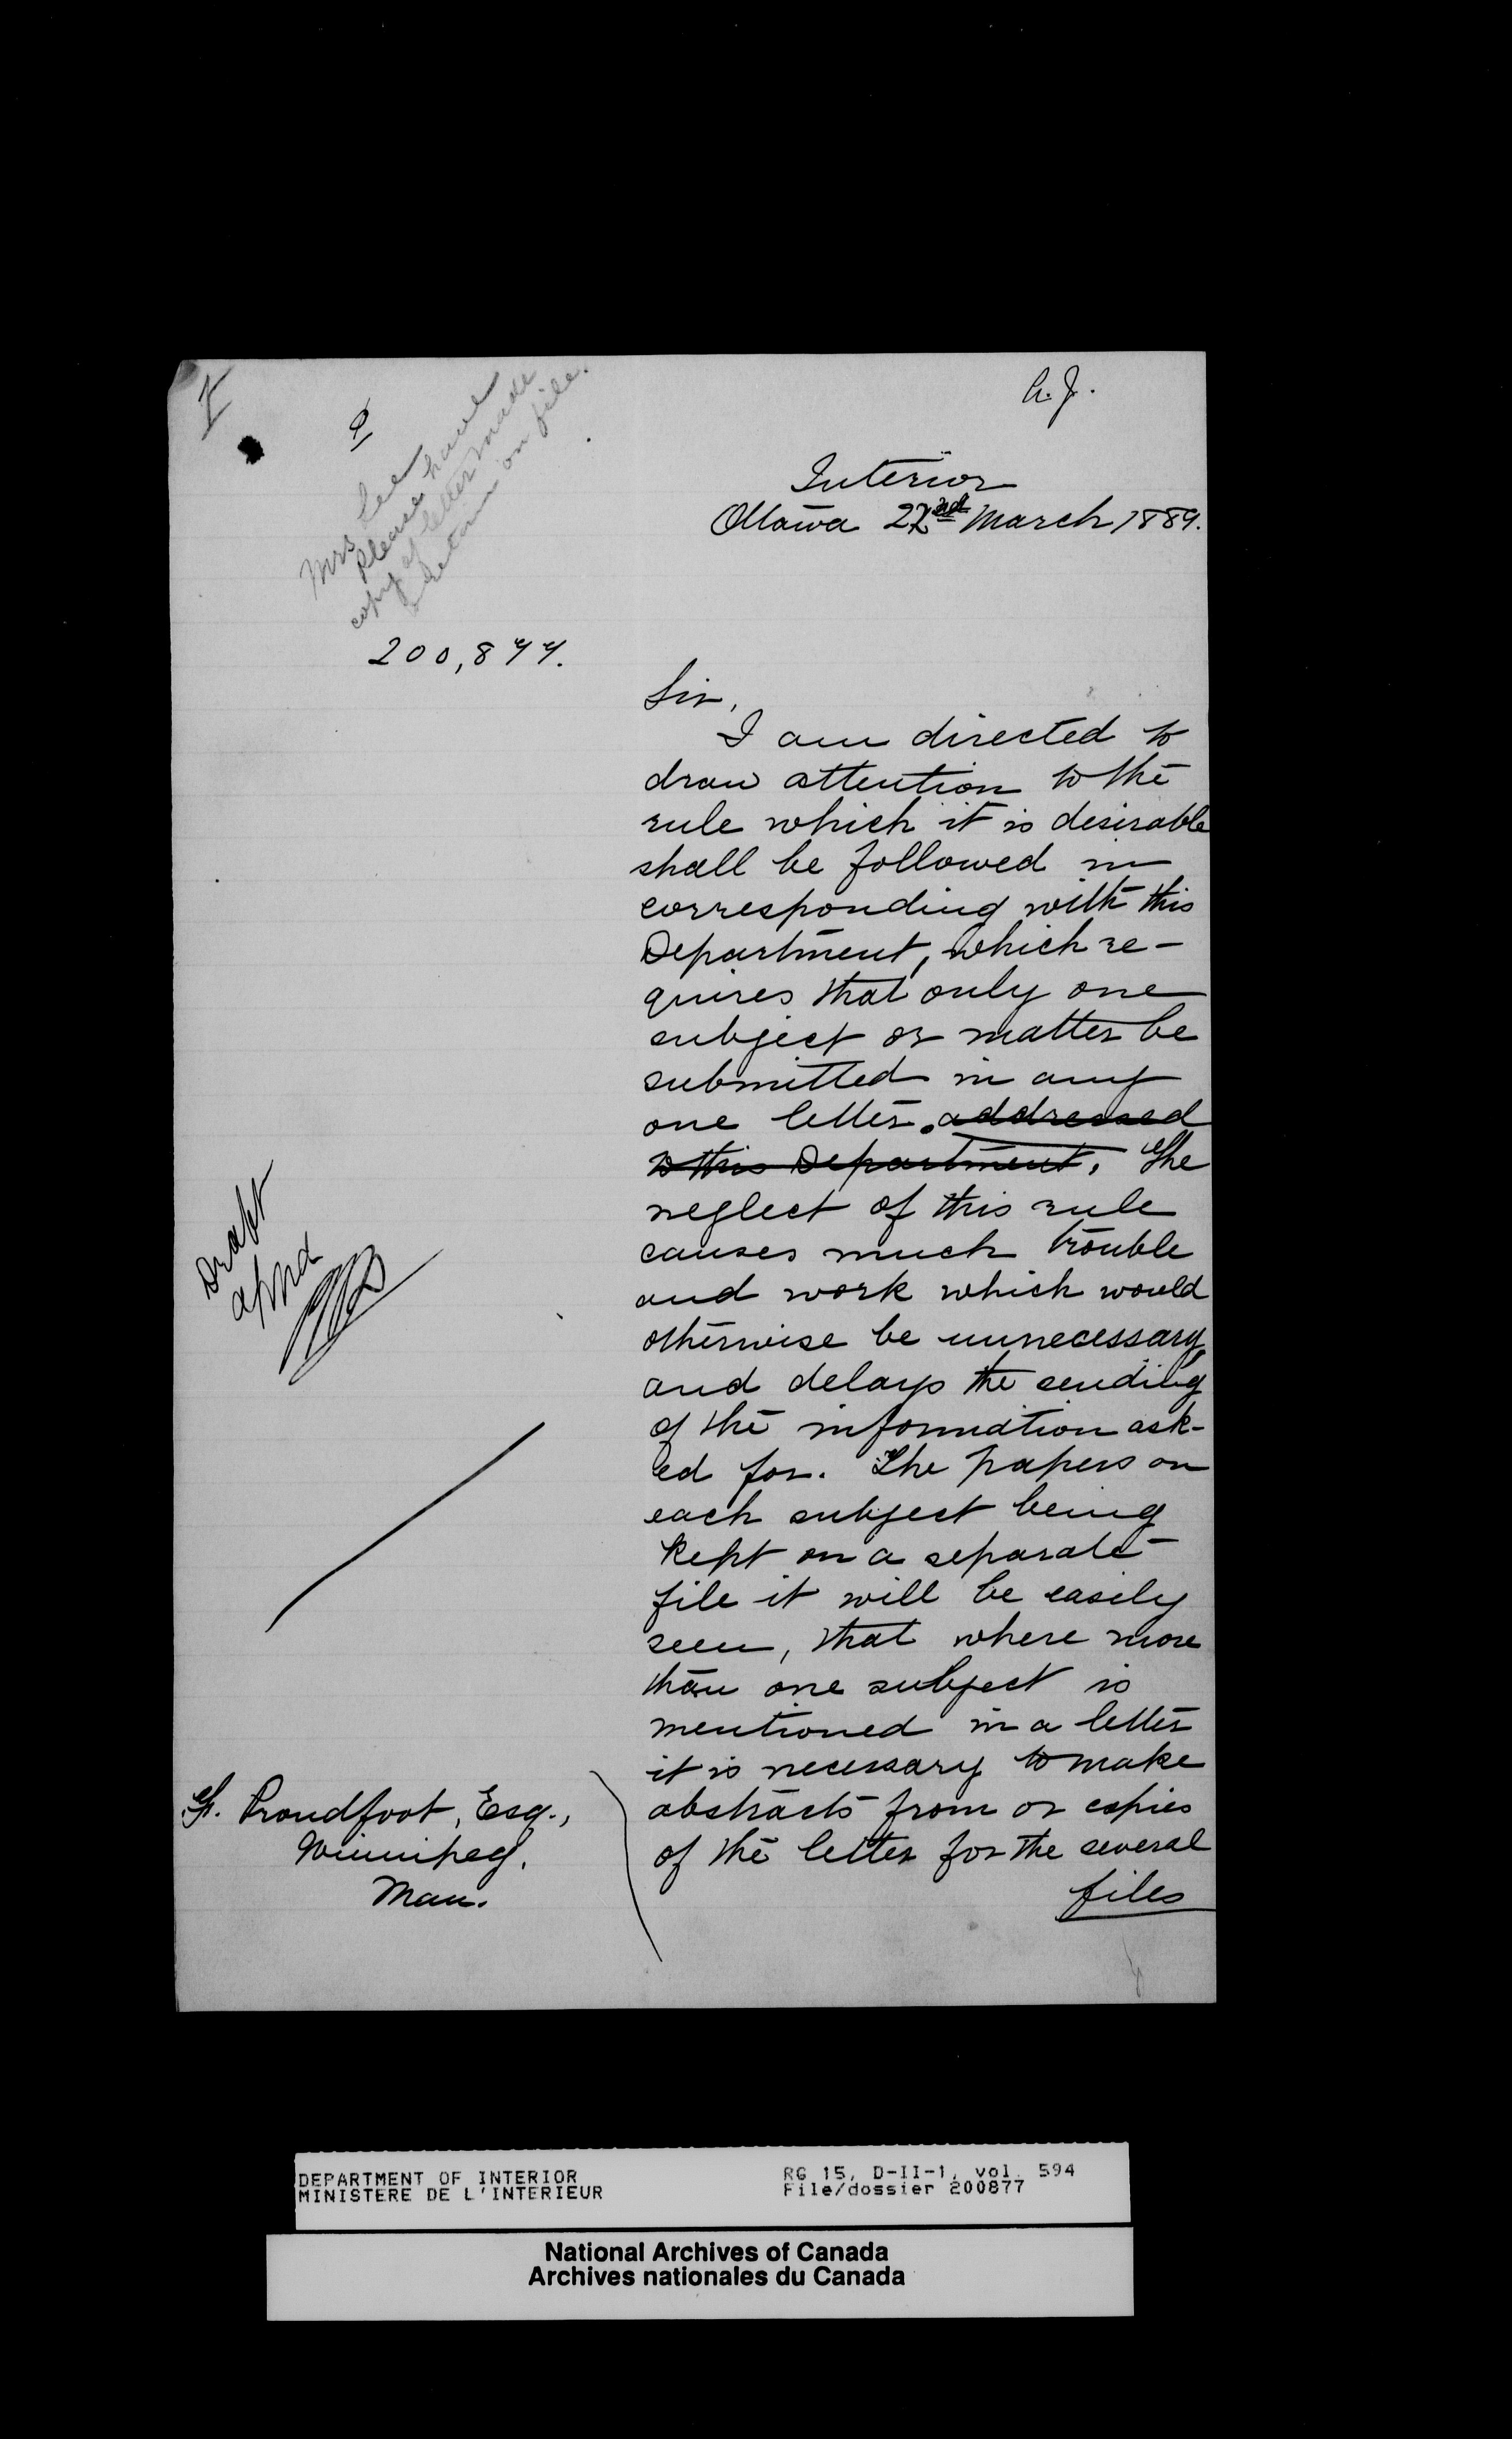 A.J.
Mrs Lee
Please have
copy of letter made
& retain on file.
Interior
Ottawa 22nd March, 1889.
200,877.
Sir,
I am directed to
draw attention to the
rule which it is desirable
shall be followed in
corresponding with this
Department, which re-
quires that only one
subject or matter be
submitted in any
one letter. addressed
to this Department. The
neglect of this rule
causes much trouble
and work which would
otherwise be unnecessary,
and delays the sending
of the information ask-
ed for. The papers on
each subject being
kept on a separate
file it will be easily
seen, that where more
than one subject is
mentioned in a letter
it is necessary to make
abstracts from or copies
of the letter for the several
files
Draft
appd
F. Proudfoot, Esq.,
Winnipeg,
Man.
DEPARTMENT OF INTERIOR
MINISTERE DE L'INTERIEUR
RG 15, D-II-1, vol. 594
File/dossier 200877
National Archives of Canada
Archives nationales du Canada